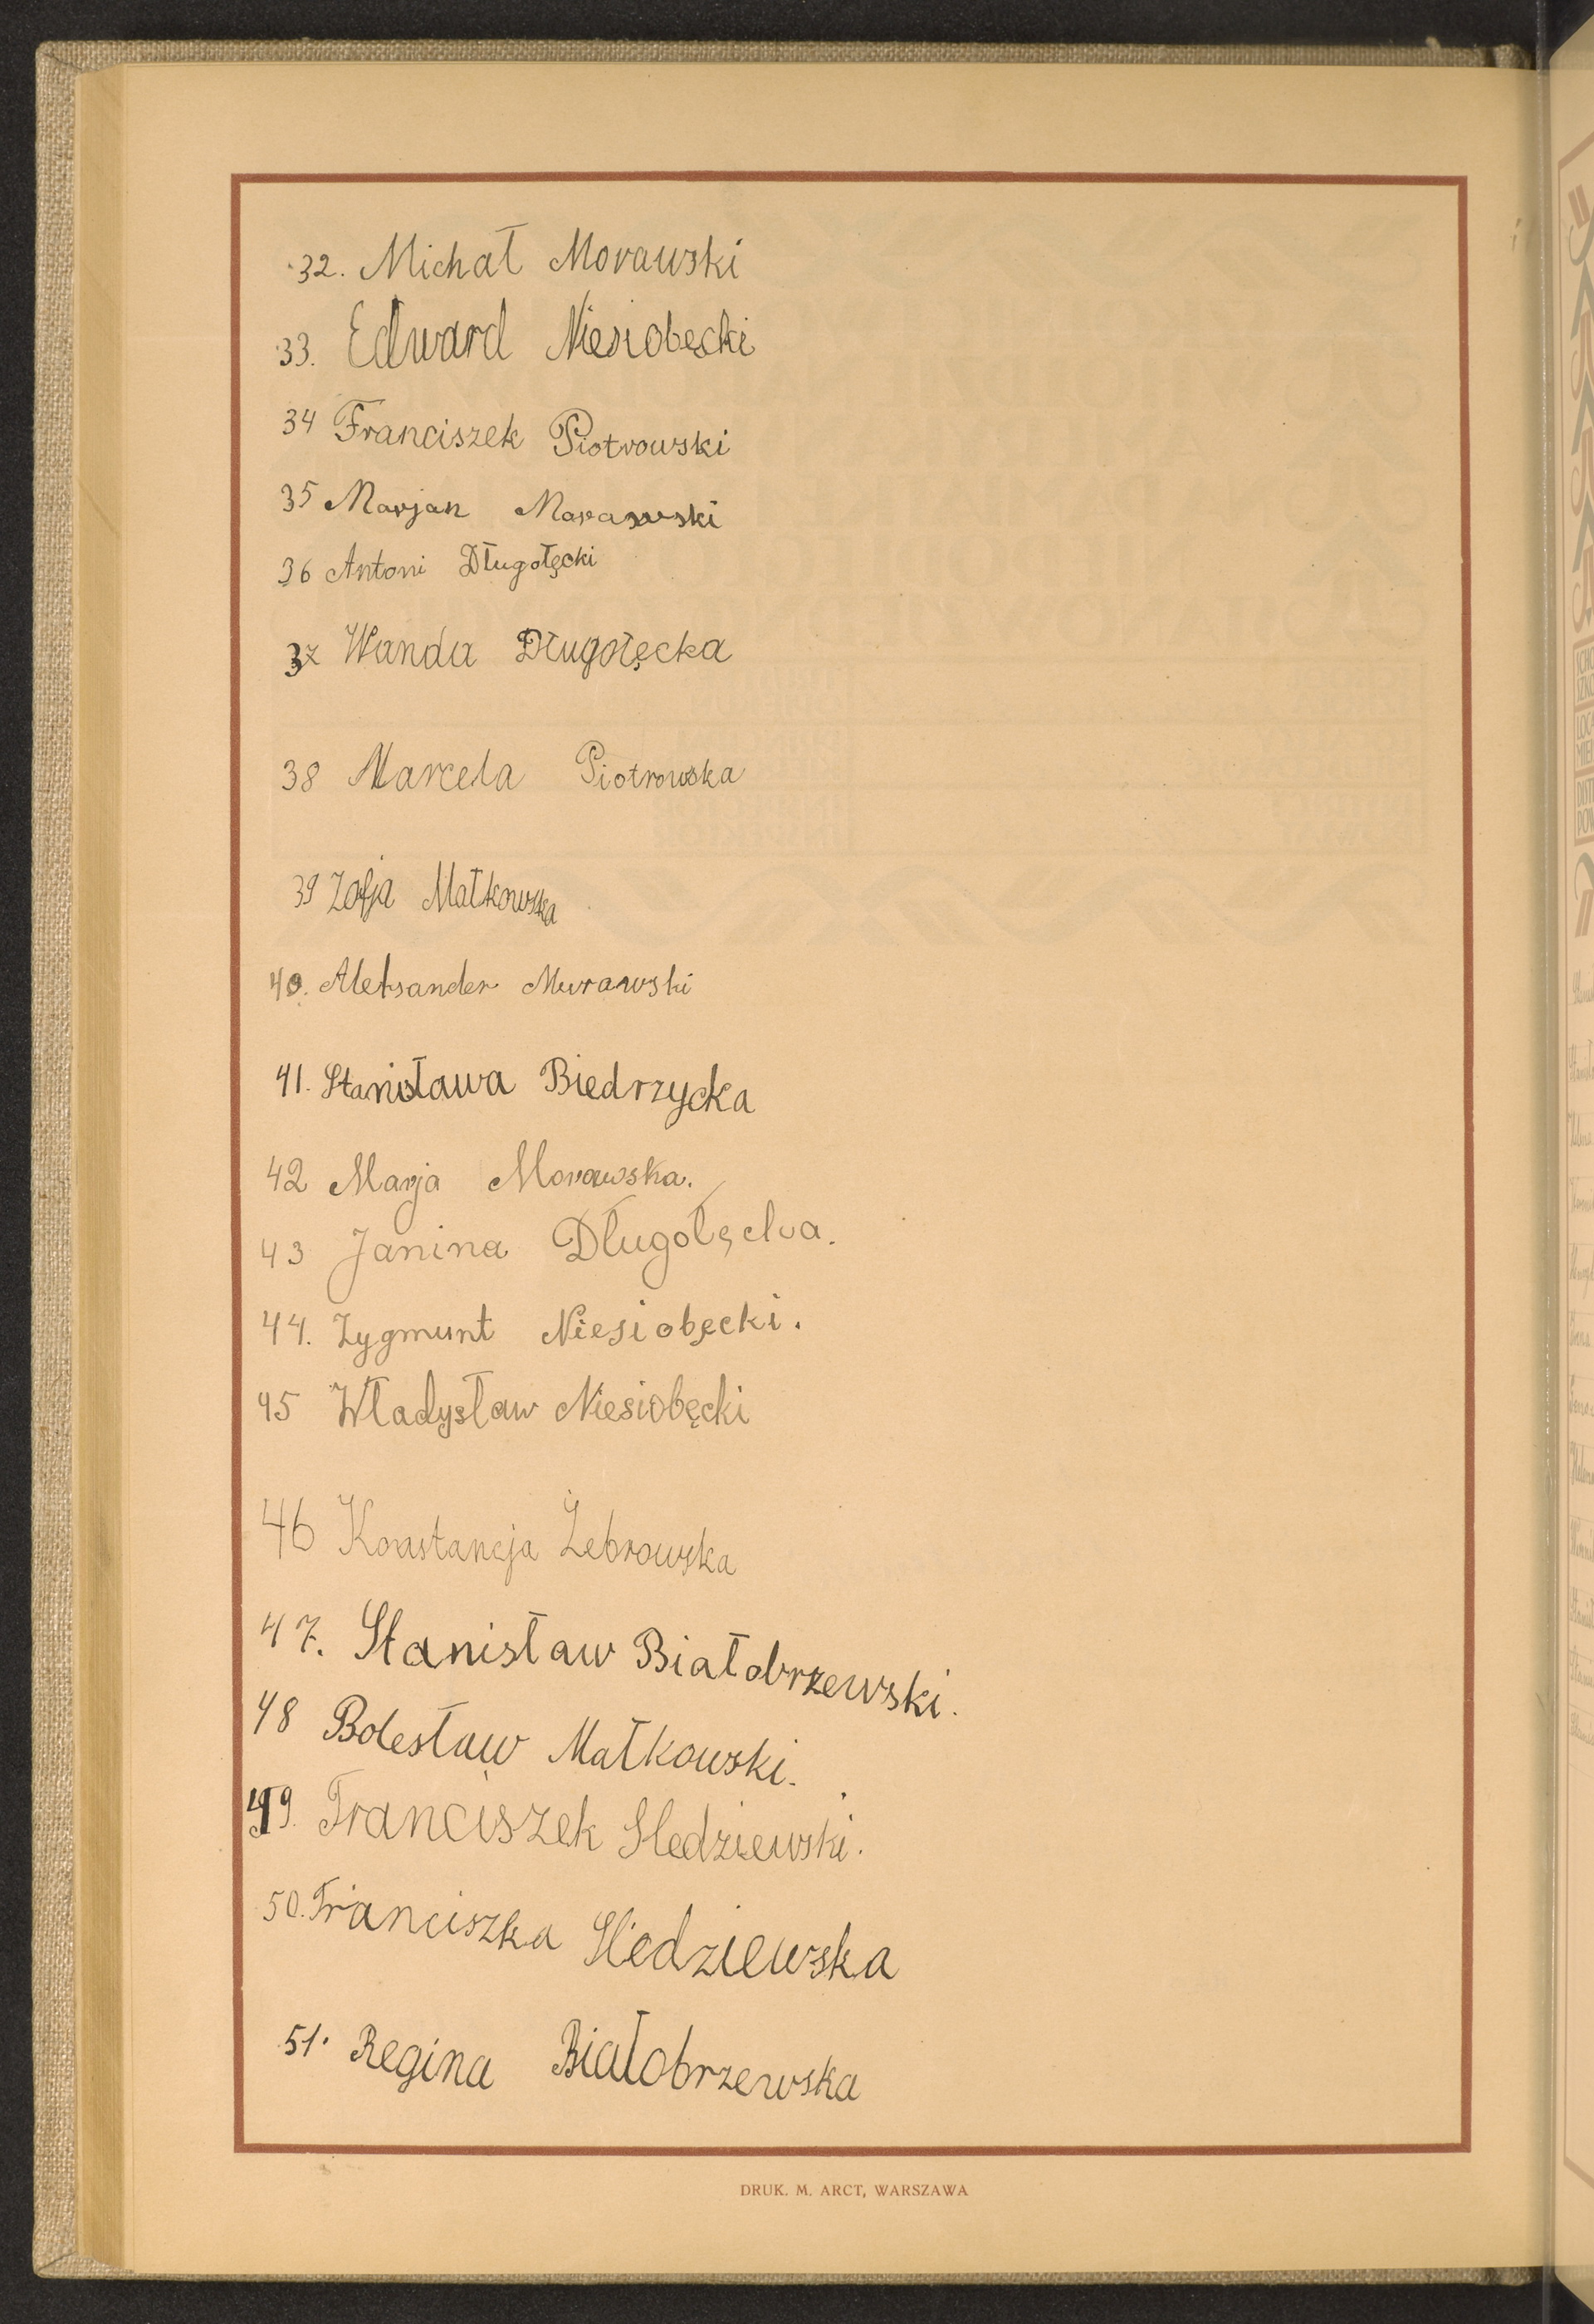 32. Michał Morawski
33. Edward Niesiobęcki
34 Franciszek Piotrowski
35 Marjan Morawski
36 Antoni Długołęcki
37 Wanda Długołęcka
38 Marcela Piotrowska
39 Zofja Małkowska
40. Aleksander Murawski
41. Stanisława Biedrzycka
42 Marja Morawska.
43 Janina Długołęcka.
44. Zygmunt Niesiobęcki.
45 Władysław Niesiobęcki
46 Konstancja Żebrowska
47. Stanisław Białobrzewski.
48 Bolesław Małkowski.
49. Franciszek Sledziewski.
50. Franciszka Sledziewska
51. Regina Białobrzewska
DRUK. M. ARCT, WARSZAWA